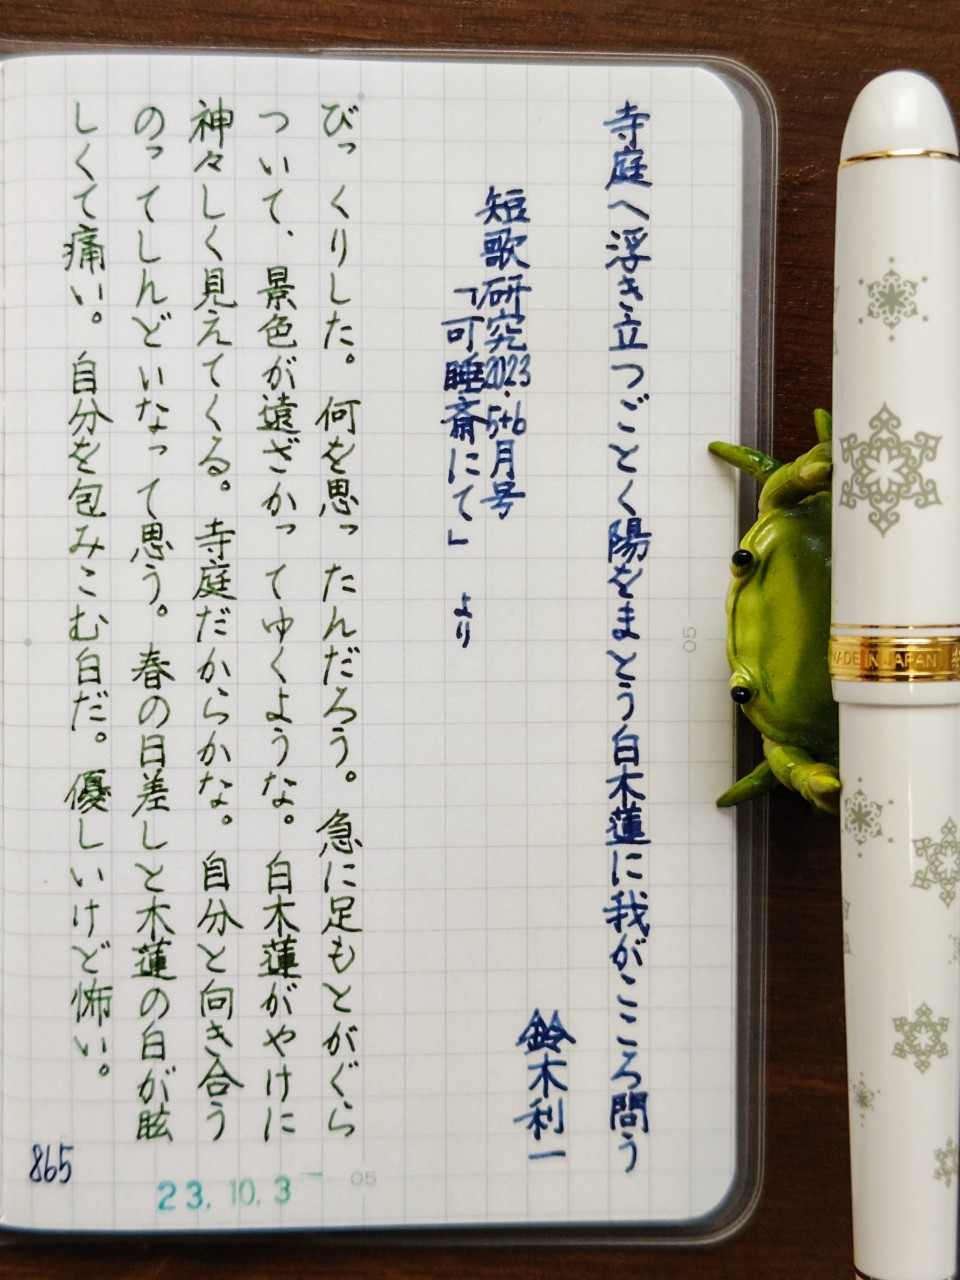 寺庭へ浮き立つごとく陽をまとう白木蓮に我がこころ問う
鈴木利一
短歌研究2023.5+6月号
「可睡斎にて」 より
びっくりした。何を思ったんだろう。急に足もとがぐら
ついて、景色が遠ざかってゆくような。白木蓮がやけに
神々しく見えてくる。寺庭だからかな。自分と向き合う
のってしんどいなって思う。春の日差しと木蓮の白が眩
しくて痛い。自分を包みこむ白だ。優しいけど怖い。
865
23.10.3
05
05
MADE IN JAPAN